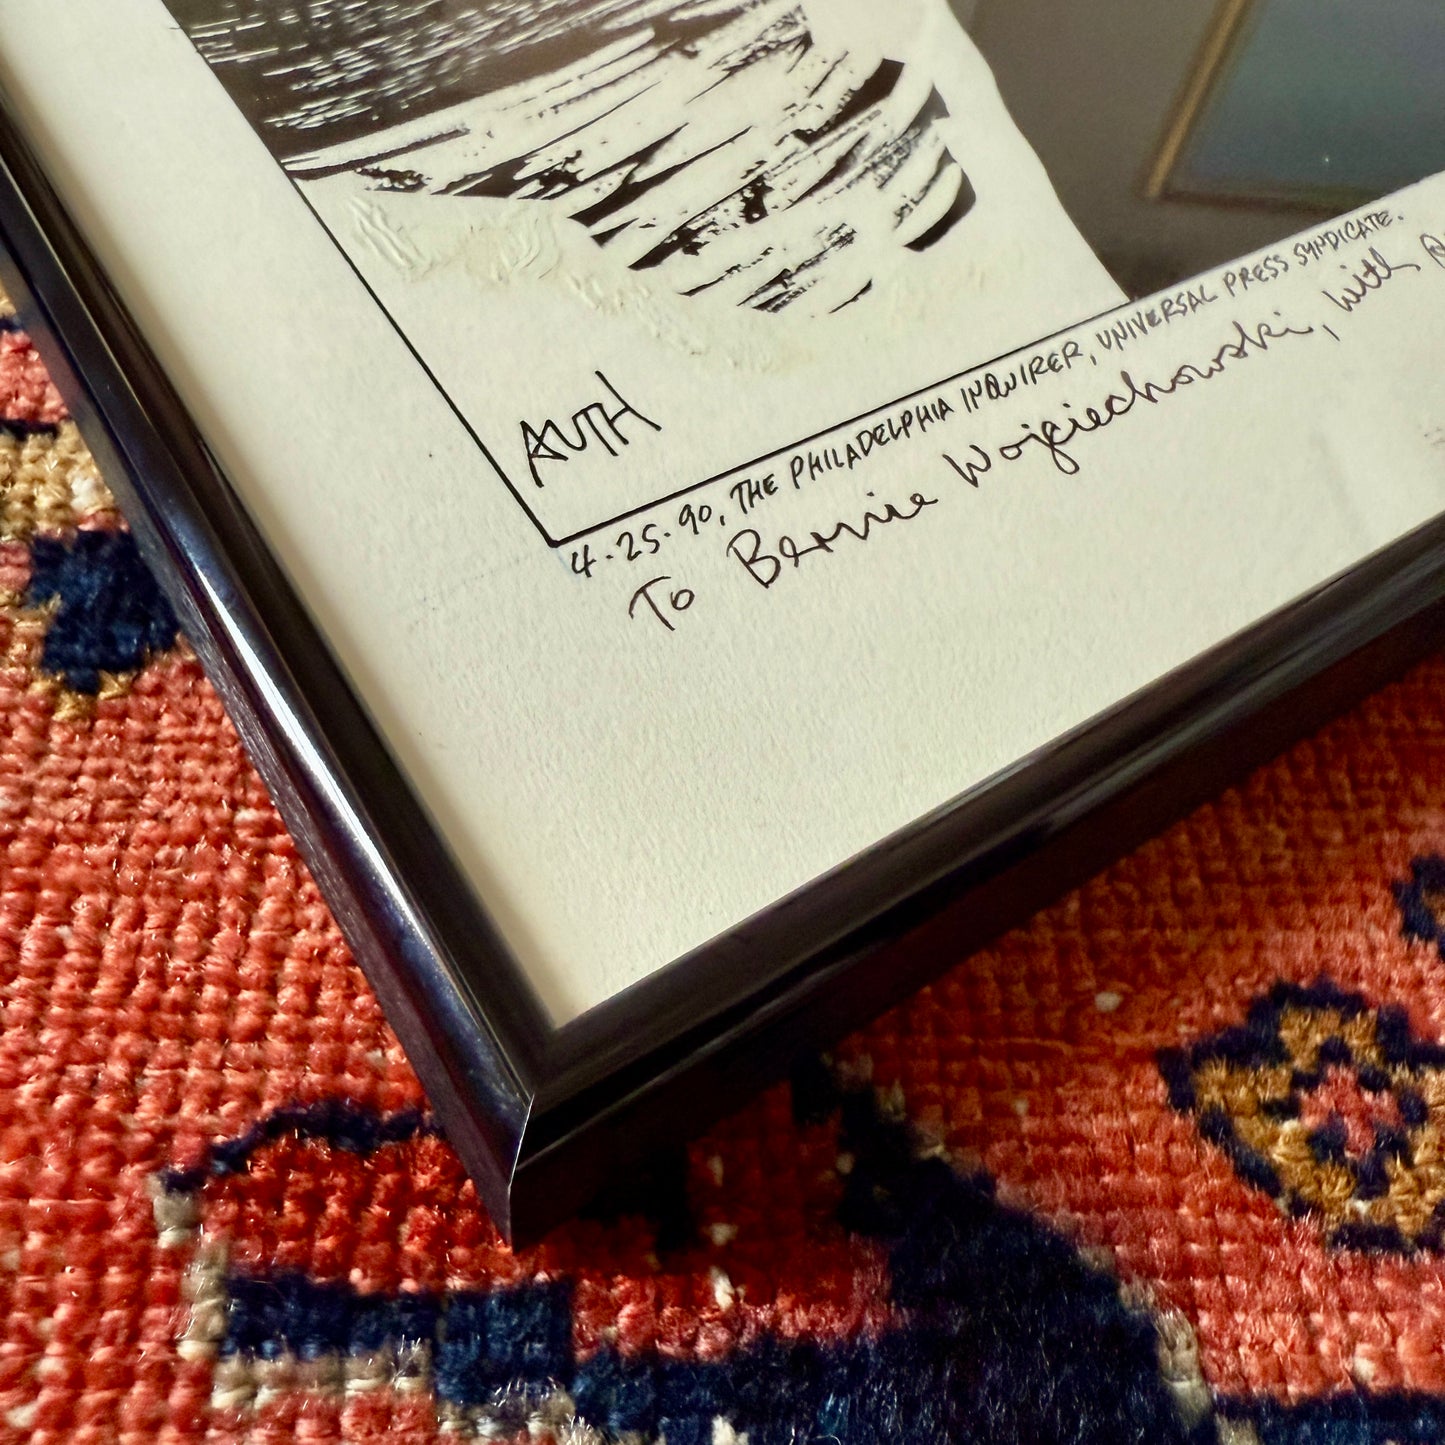 AUTH
4·25·90, THE PHILADELPHIA INQUIRER, UNIVERSAL PRESS SYNDICATE.
To Bernie Wojciechowski, with